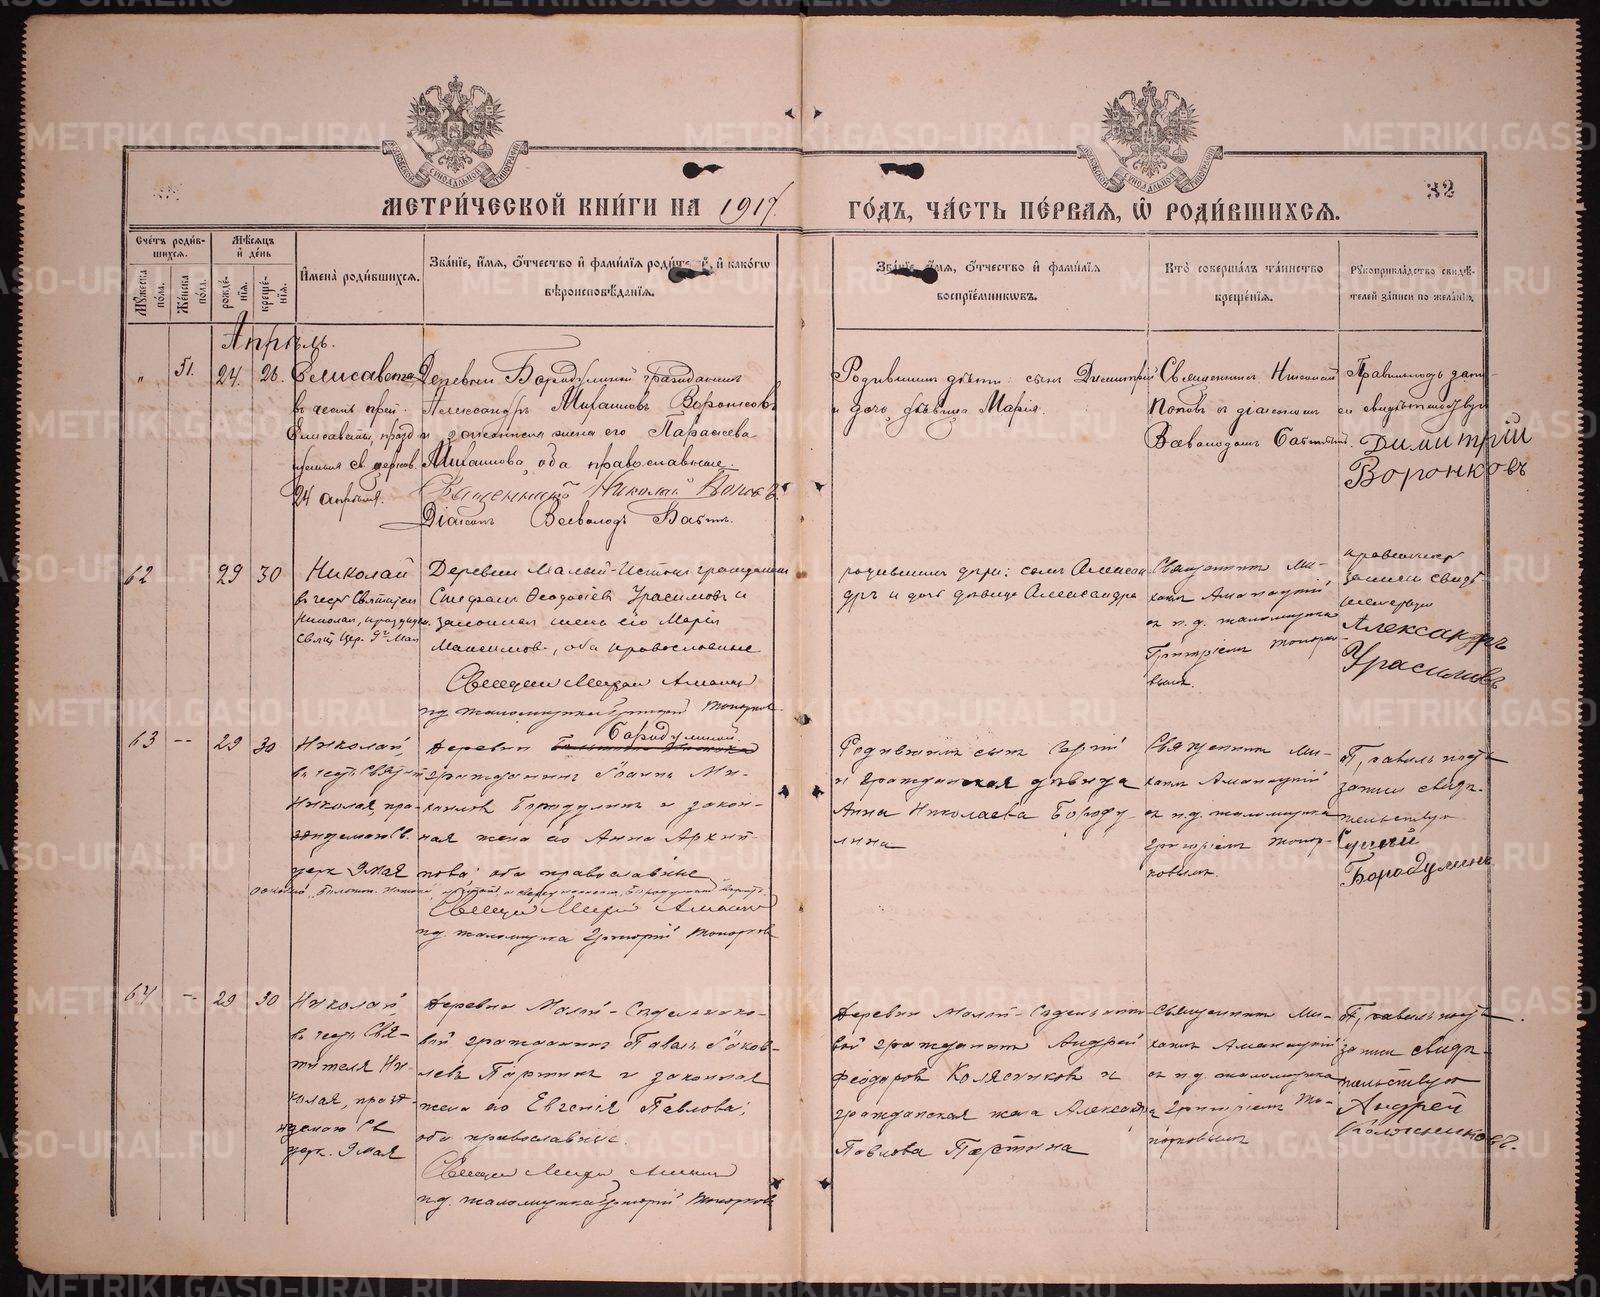 МЕТРИ́ЧЕСКОЙ КНИ́ГИ НА 1917
ГО́ДЪ, ЧА́СТЬ ПЕ́РВАѦ, Ѽ РОДИ́ВШИХСѦ.
32
Сче́тъ роди́в-
шихсѧ.
Мꙋжеска по́ла.
Же́нска по́ла.
Мѣ́сѧцъ и҆ де́нь
рожде́-
нїѧ.
креще́-
нїѧ.
И҆мена̀ роди́вшихсѧ.
Зва́нїе, и҆́мѧ, ѻ҆́тчество и҆ фами́лїѧ роди́телей, и҆ како́гѡ
вѣроисповѣ́данїѧ.
Зва́нїе, и҆́мѧ, ѻ҆́тчество и҆ фами́лїѧ
воспрїе́мникѡвъ.
Кто̀ соверша́лъ та́инство
креще́нїѧ.
Рꙋкоприкла́дство свидѣ́-
телей за́писи по жела́нїю.
Апрѣль.
" 51. 24. 26.
Елисавета
въ честь преп.
Елисаветы, празд
24 апрѣля.
Деревни Бородулиной гражданинъ
Александръ Михаиловъ Воронковъ
и законная жена его Параскева
Михаилова, оба православные.
Священникъ Николай Поповъ
Діаконъ Всеволодъ
Родившихъ дѣти: сынъ Димитрій
и дочь, дѣвица Марія.
Священникъ Николай
Поповъ съ діакономъ
Всеволодомъ
Правильность запи-
си свидѣтельствую
Димитрій
Воронковъ
62 29 30
Николай
въ честь Святителя
Николая, празднуем.
Свят. Цер. 9го Мая
Деревни Малый-Истокъ гражданинъ
Стефанъ Ѳеодосіевъ Урасимовъ и
законная жена его Марія
Максимова, оба православные
п.д. псаломщика Григорій Топорков
родившихъ дѣти: сынъ Алексан
дръ и дочь дѣвица Александра
Священникъ Ми-
хаилъ
съ и.д. псаломщика
Григоріемъ Топорко-
вымъ.
правильность
записи свидѣ
тельствую
Александръ
Урасимовъ
63 -- 29 30
Николай,
въ честь Святит
Николая, пра-
зднуемаго Св.
церк. 9 мая
Деревни Бородулиной
гражданинъ Іоаннъ Ми-
хаиловъ Бородулинъ и закон-
ная жена его Анна Архип-
пова; оба православные
п.д. псаломщика Григорій Топорков
Родившихъ сынъ Сергій
и гражданская дѣвица
Анна Николаева Бороду-
лина
Священникъ Ми-
хаилъ
съ и.д. псаломщика
Григоріемъ Топор-
ковымъ.
Правильность
записи свидѣ-
тельствую
Сергѣй
Бородулинъ
64 -- 29 30
Николай,
въ честь Свя-
тителя Ни-
колая, празд-
нуемаго Св
церк. 9 мая
Деревни Малой-Седельнико-
вой гражданинъ Павелъ Іаков-
левъ Партинъ и законная
жена его Евгенія Павлова;
оба православные.
п.д. псаломщика Григорій Топорков
Деревни Малой-Седельнико
вой гражданинъ Андрей
Феодоровъ Колясниковъ и
гражданская жена Александра
Павлова Партина
Священникъ Ми-
хаилъ
съ и.д. псаломщика
Григоріемъ То-
порковымъ
Правильность
записи свидѣ-
тельствую
Андрей
Колясниковъ.
METRIKI.GASO-URAL.RU